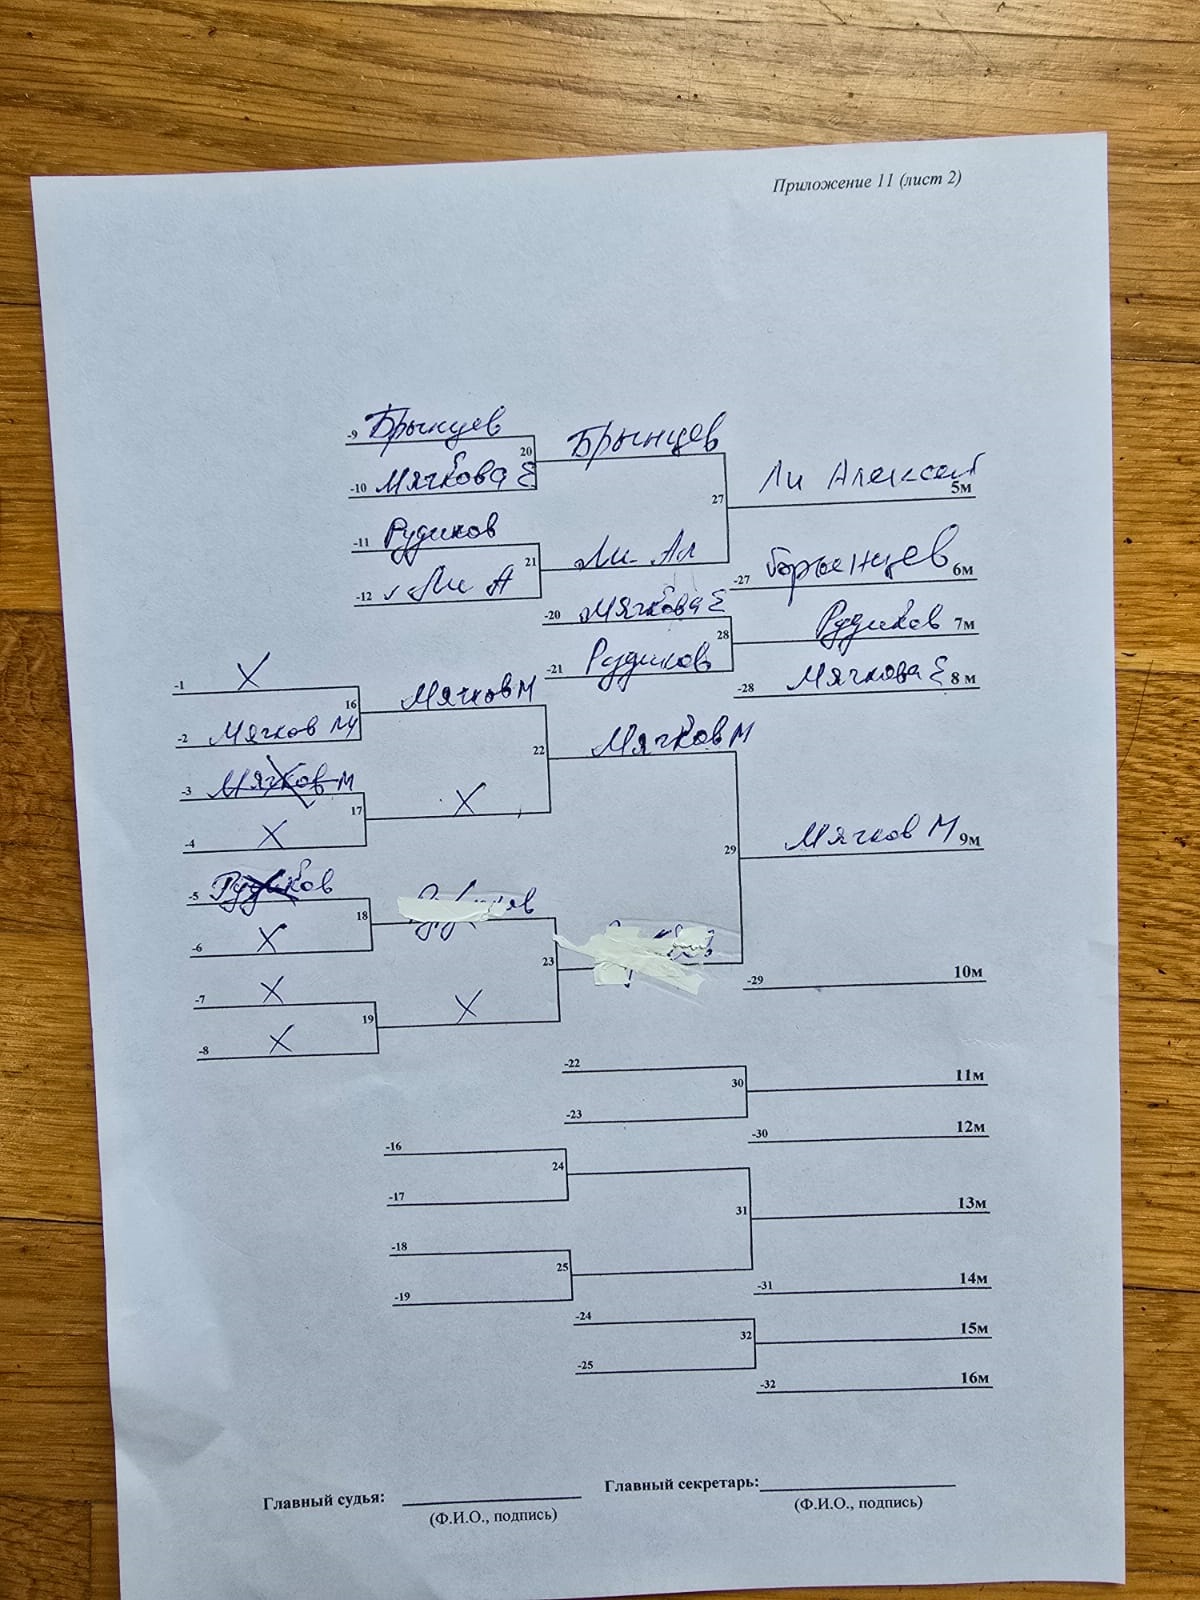 Приложение 11 (лист 2)
-9 Брынцев
20 Брынцев
-10 Мячкова Е
27 Ли Алексей 5м
-11 Рудиков
21 Ли Ал
-12 Ли А
-27 Брынцев 6м
-20 Мячкова Е
28 Рудиков 7м
-21 Рудиков
-28 Мячкова Е 8 м
-1 X
16 Мячков М
-2 Мячков М
22 Мячков М
-3 Мячков М
17 X
-4 X
29 Мячков М 9м
-5 Рудиков
18
-6 X
23
-29 10м
-7 X
19 X
-8 X
-22
30 11м
-23
-30 12м
-16
24
-17
31 13м
-18
25
-19
-31 14м
-24
32 15м
-25
-32 16м
Главный судья: Главный секретарь:
(Ф.И.О., подпись) (Ф.И.О., подпись)